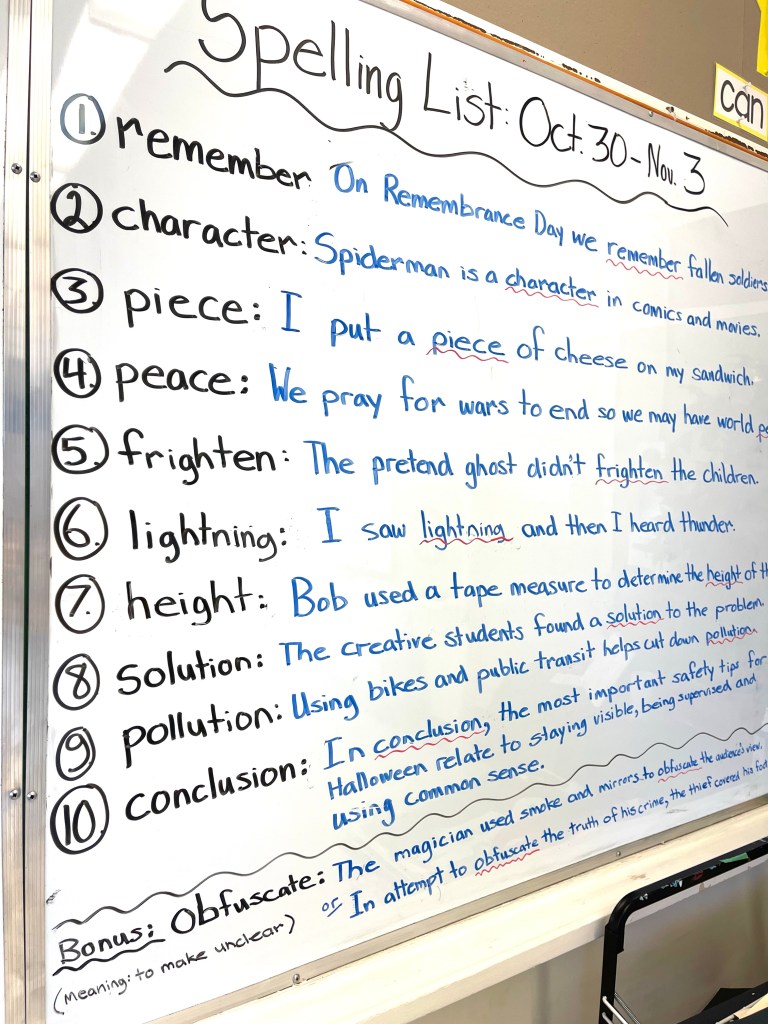 Spelling List: Oct. 30 - Nov. 3
can
1. remember: On Remembrance Day we remember fallen soldiers
2. character: Spiderman is a character in comics and movies.
3. piece: I put a piece of cheese on my sandwich.
4. peace: We pray for wars to end so we may have world
5. frighten: The pretend ghost didn't frighten the children.
6. lightning: I saw lightning and then I heard thunder.
7. height: Bob used a tape measure to determine the height of
8. solution: The creative students found a solution to the problem.
9. pollution: Using bikes and public transit helps cut down pollution.
10. conclusion: In conclusion, the most important safety tips for
Halloween relate to staying visible, being supervised and
using common sense.
Bonus: Obfuscate: The magician used smoke and mirrors to obfuscate the audience's view.
(Meaning: to make unclear) or In attempt to obfuscate the truth of his crime, the thief covered his